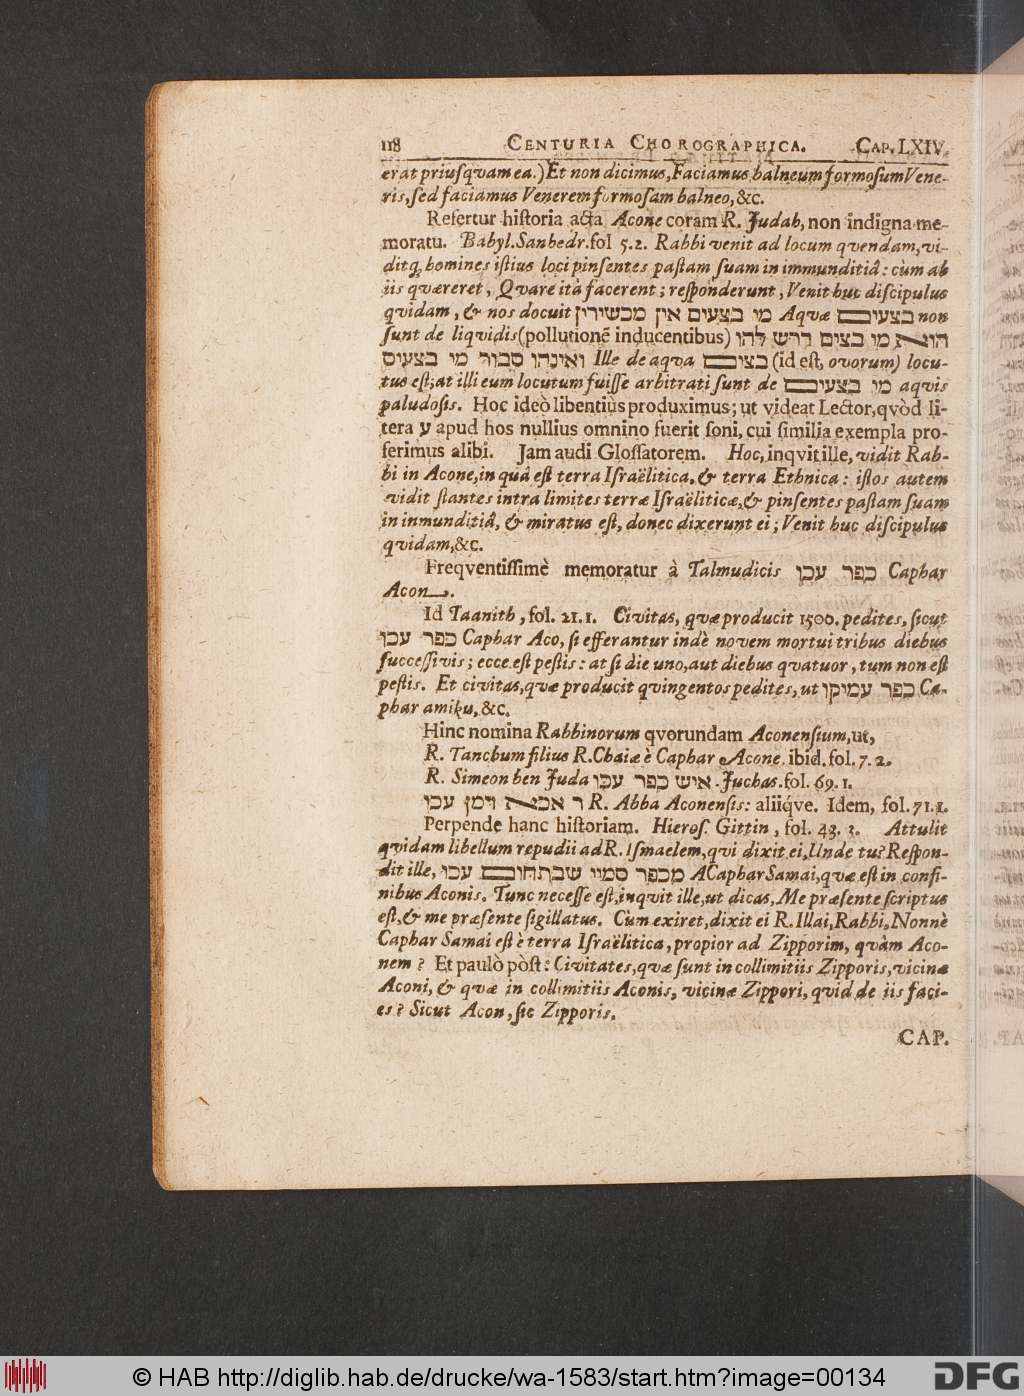 118 CENTURIA CHOROGRAPHICA. CAP. LXIV.
erat priusqvam ea.) Et non dicimus, Faciamus balneum formosum Vene-
ris, sed faciamus Venerem formosam balneo, &c.
Refertur historia acta Acone coram R. Judah, non indigna me-
moratu. Babyl. Sanhedr. fol 5. 2. Rabbi venit ad locum qvendam, vi-
ditq; homines istius loci pinsentes pastam suam in immunditiâ: cùm ab
iis qværeret, Qvare ità facerent; responderunt, Venit huc discipulus
qvidam, & nos docuit מי בצעים אין מכשירין Aqvæ בצעים non
sunt de liqvidis (pollutionē inducentibus) הוא מי בצים דרש להו
ואינהו סבור מי בצעים Ille de aqva בצים (id est, ovorum) locu-
tus est; at illi eum locutum fuisse arbitrati sunt de מי בצעים aqvis
paludosis. Hoc ideò libentiùs produximus; ut videat Lector, qvòd li-
tera ע apud hos nullius omnino fuerit soni, cui similia exempla pro-
ferimus alibi. Jam audi Glossatorem. Hoc, inqvit ille, vidit Rab-
bi in Acone, in quâ est terra Israëlitica, & terra Ethnica: istos autem
vidit stantes intra limites terræ Israëliticæ, & pinsentes pastam suam
in inmunditiâ, & miratus est, donec dixerunt ei; Venit huc discipulus
qvidam, &c.
Freqventissimè memoratur à Talmudicis כפר עכו Caphar
Acon.
Id Taanith, fol. 21. 1. Civitas, qvæ producit 1500. pedites, sicut
כפר עכו Caphar Aco, si efferantur indè novem mortui tribus diebus
successivis; ecce est pestis: at si die uno, aut diebus qvatuor, tum non est
pestis. Et civitas, qvæ producit qvingentos pedites, ut כפר עמיקו Ca-
phar amiku, &c.
Hinc nomina Rabbinorum qvorundam Aconensium, ut,
R. Tanchum filius R. Chaiæ è Caphar Acone. ibid. fol. 7. 2.
R. Simeon ben Juda איש כפר עכו. Juchas. fol. 69. 1.
ר אבא דימן עכו R. Abba Aconensis: aliiq́ve. Idem, fol. 71. 1.
Perpende hanc historiam. Hieros. Gittin, fol. 43. 3. Attulit
qvidam libellum repudii ad R. Ismaelem, qvi dixit ei, Unde tu? Respon-
dit ille, מכפר סמיי שבתחום עכו A Caphar Samai, qvæ est in confi-
nibus Aconis. Tunc necesse est, inqvit ille, ut dicas, Me præsente scriptus
est, & me præsente sigillatus. Cùm exiret, dixit ei R. Illai, Rabbi, Nonnè
Caphar Samai est è terra Israëlitica, propior ad Zipporim, quàm Aco-
nem? Et paulò pòst: Civitates, qvæ sunt in collimitiis Zipporis, vicinæ
Aconi, & qvæ in collimitiis Aconis, vicinæ Zippori, qvid de iis faci-
es? Sicut Acon, sic Zipporis.
CAP.
© HAB http://diglib.hab.de/drucke/wa-1583/start.htm?image=00134
DFG